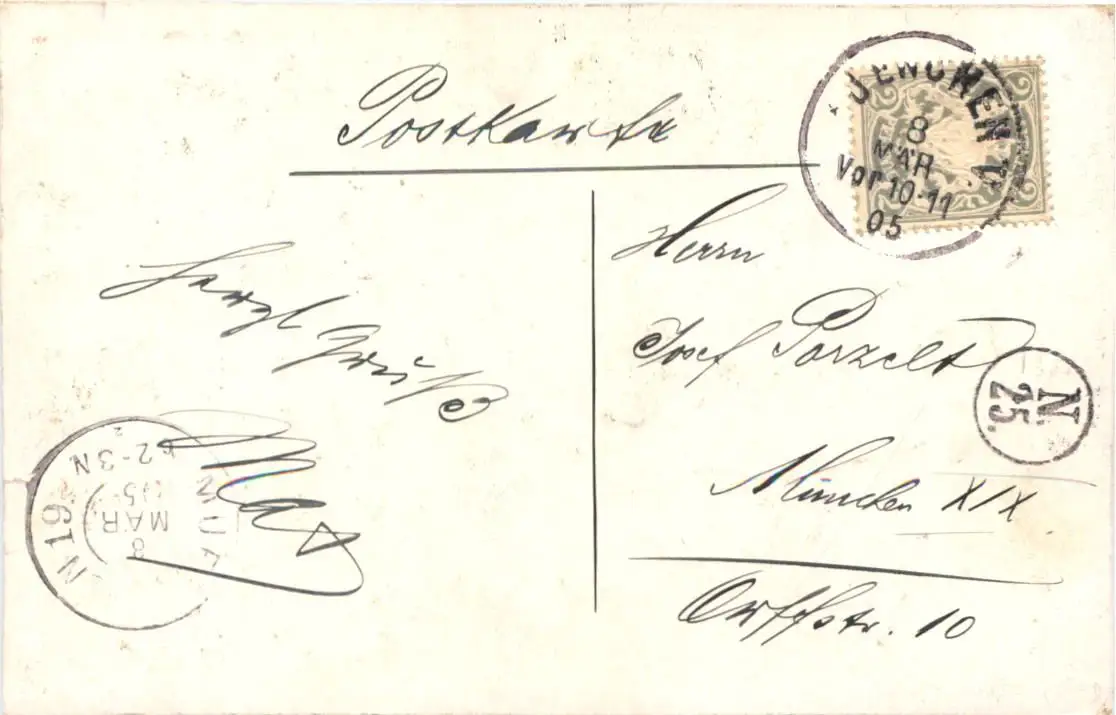 Postkarte
JENCHEN 1.
8
MÄR
Vor 10-11
05
Herrn
Josef Porzelt
München XIX.
Orffstr. 10
N.
25.
Herzl
Gruß
Max
N 19.
8
MAR.
05
2-3N